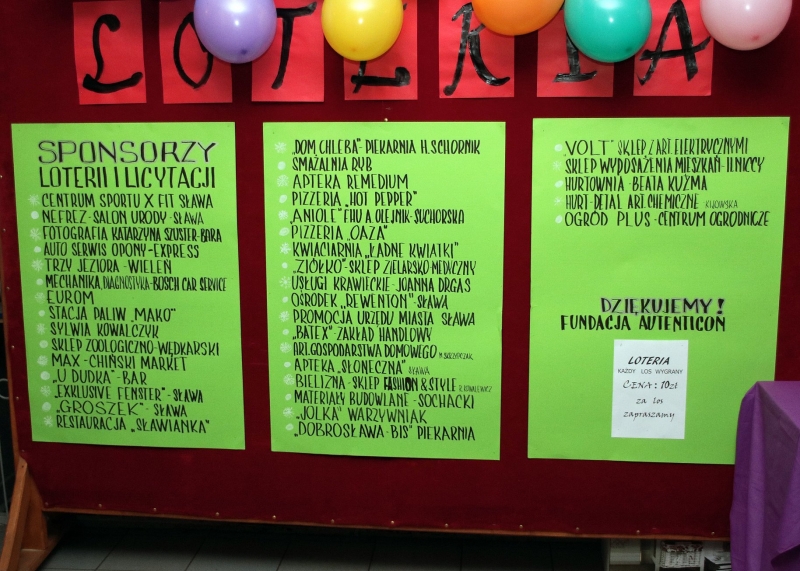 LOTERIA
SPONSORZY
LOTERII I LICYTACJI
CENTRUM SPORTU X FIT SŁAWA
NEFREZ-SALON URODY-SŁAWA
FOTOGRAFIA KATARZYNA SZUSTER-BARA
AUTO SERWIS OPONY-EXPRESS
TRZY JEZIORA-WIELEŃ
MECHANIKA DIAGNOSTYKA-BOSCH CAR SERVICE
EUROM
STACJA PALIW „MAKO"
SYLWIA KOWALCZYK
SKLEP ZOOLOGICZNO-WĘDKARSKI
MAX-CHIŃSKI MARKET
„U DUDKA"-BAR
„EXKLUSIVE FENSTER"-SŁAWA
„GROSZEK"-SŁAWA
RESTAURACJA „SŁAWIANKA"
„DOM CHLEBA"-PIEKARNIA H.SCHORNIK
SMAŻALNIA RYB
APTEKA REMEDIUM
PIZZERIA „HOT PEPPER"
„ANIOŁE" FHU A OLEJNIK-SUCHORSKA
PIZZERIA „OAZA"
KWIACIARNIA „ŁADNE KWIATKI"
„ZIÓŁKO"-SKLEP ZIELARSKO-MEDYCZNY
USŁUGI KRAWIECKIE-JOANNA DRGAS
OŚRODEK „REWENTON" SŁAWA
PROMOCJA URZĘDU MIASTA SŁAWA
„BATEX"-ZAKŁAD HANDLOWY
ART.GOSPODARSTWA DOMOWEGO
APTEKA „SŁONECZNA" SŁAWA
BIELIZNA-SKLEP FASHION & STYLE
MATERIAŁY BUDOWLANE-SOCHACKI
„JOLKA" WARZYWNIAK
„DOBROSŁAWA-BIS" PIEKARNIA
„VOLT" SKLEP Z ART ELEKTRYCZNYMI
SKLEP WYPOSAŻENIA MIESZKAŃ-ILNICCY
HURTOWNIA-BEATA KUŹMA
HURT-DETAL ART.CHEMICZNE KIJOWSKA
OGRÓD PLUS-CENTRUM OGRODNICZE
DZIĘKUJEMY!
FUNDACJA AUTENTICON
LOTERIA
KAŻDY LOS WYGRANY
CENA: 10zł
za los
zapraszamy